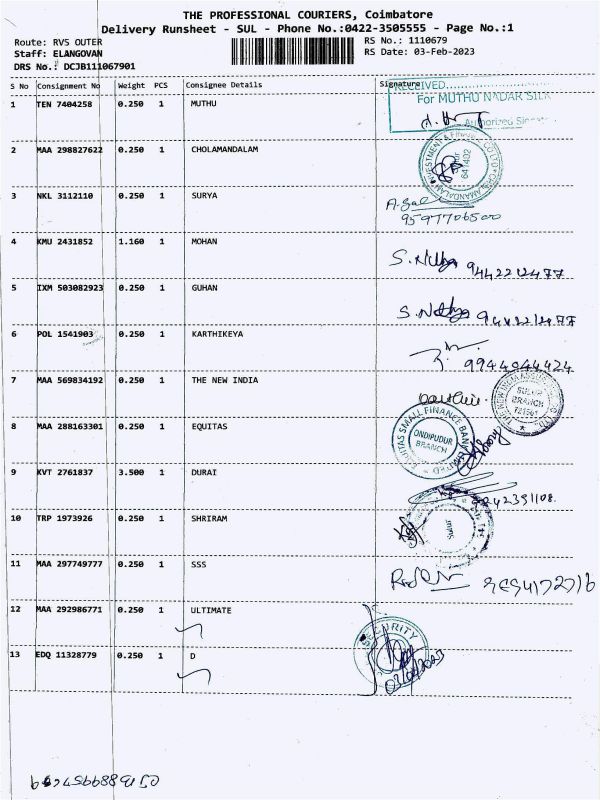 THE PROFESSIONAL COURIERS, Coimbatore
Delivery Runsheet - SUL - Phone No.:0422-3505555 - Page No.:1
Route: RVS OUTER
RS No.: 1110679
Staff: ELANGOVAN
RS Date: 03-Feb-2023
DRS No.: DCJB111067901
S No Consignment No Weight PCS Consignee Details Signature
RECEIVED
For MUTHU NADAR SILK
1 TEN 7404258 0.250 1 MUTHU
Authorized
2 MAA 298827622 0.250 1 CHOLAMANDALAM
Sulur
641402
3 NKL 3112110 0.250 1 SURYA
9597706500
4 KMU 2431852 1.160 1 MOHAN
S. 9442212477
5 IXM 503082923 0.250 1 GUHAN
S. 9442212477
6 POL 1541903 0.250 1 KARTHIKEYA
9944044424
7 MAA 569834192 0.250 1 THE NEW INDIA
SULUR
BRANCH
8 MAA 288163301 0.250 1 EQUITAS
EQUITAS SMALL FINANCE BANK LIMITED
ONDIPUDUR
BRANCH
9 KVT 2761837 3.500 1 DURAI
10 TRP 1973926 0.250 1 SHRIRAM
Sulur
11 MAA 297749777 0.250 1 SSS
12 MAA 292986771 0.250 1 ULTIMATE
SECURITY
13 EDQ 11328779 0.250 1 D